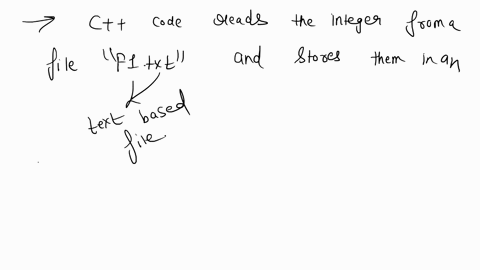 → C++ code reads the integer from a
file "P1 txt" and stores them in an
text based
file